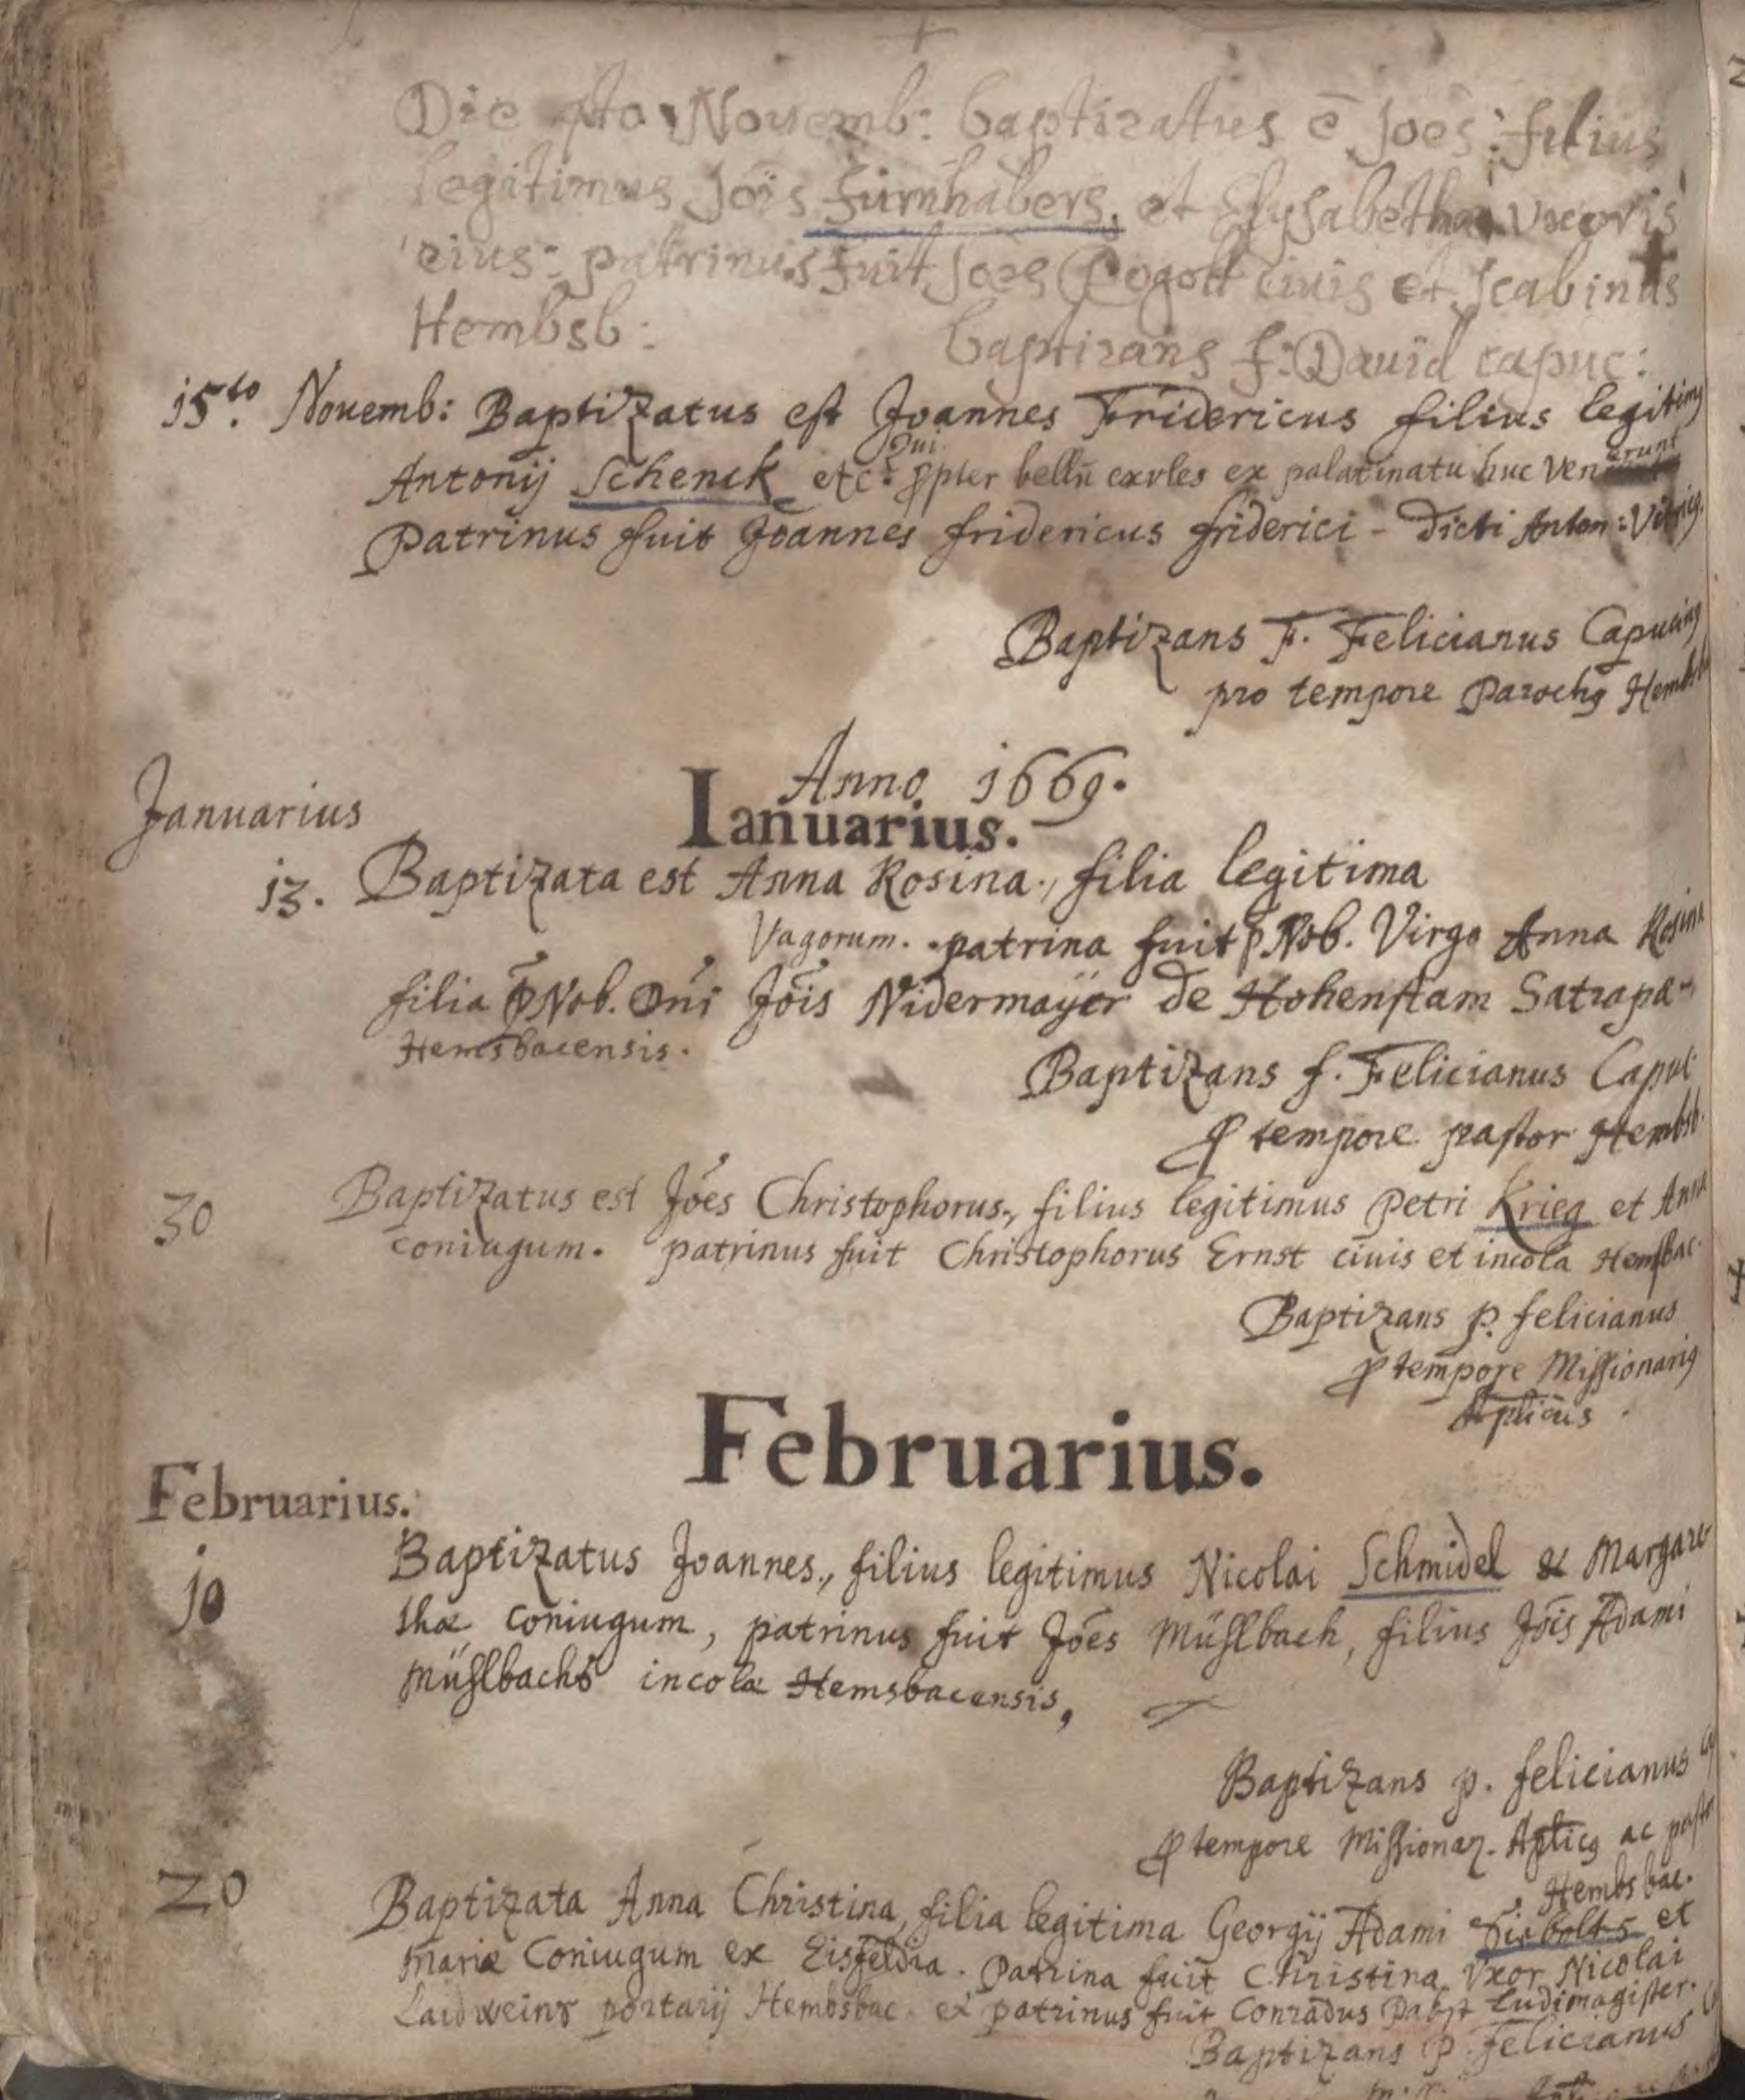 Die pta Nouemb: baptizatus ē Joēs: filius
legitimus Jois fürnhabers, et Elysabetha vxoris
eius: patrinus fuit Joes Cogott ciuis et scabinus
Hembsb:
baptizans f: Dauid capuc:
15.to Nouemb: Baptizatus est Joannes Fridericus filius legitimꝰ
Antonij Schenck etc: qui ꝓpter bellū exules ex palatinatu huc venerunt
Patrinus fuit Joannes fridericus friderici - dicti Anton:
Baptizans F. Felicianus Capucinꝰ
pro tempore Parochꝰ Hembsb
Anno 1669.
Januarius
Ianuarius.
13. Baptizata est Anna Rosina, filia legitima
Vagorum. patrina fuit p Nob. Virgo Anna Rosina
filia p Nob. Dn̄i Jōis Nidermayer de Hohenstam Satrapæ
Hemsbacensis.
Baptizans f. Felicianus Capuc.
ꝓ tempore pastor Hembsb.
30 Baptizatus est Jōes Christophorus, filius legitimus Petri Krieg et Anna
coniugum. patrinus fuit Christophorus Ernst ciuis et incola Hemsbac.
Baptizans p. felicianus
ꝓ tempore Missionariꝰ
Aplicus
Februarius.
Februarius.
10 Baptizatus Joannes, filius legitimus Nicolai Schmidel & Margare-
thæ coniugum, patrinus fuit Jōes Müslbach, filius Jōis Adami
Müslbachs incolæ Hemsbacensis,
Baptizans p. felicianus
ꝓ tempore Missionar. Aplicꝰ ac pastor
Hembsbac.
20 Baptizata Anna Christina, filia legitima Georgij Adami Diebolts et
Mariæ Coniugum ex Eisfeldia. Patrina fuit Christina Vxor Nicolai
Laidweins portarij Hembsbac. et patrinus fuit Conradus Pabst Ludimagister.
Baptizans P. Felicianus